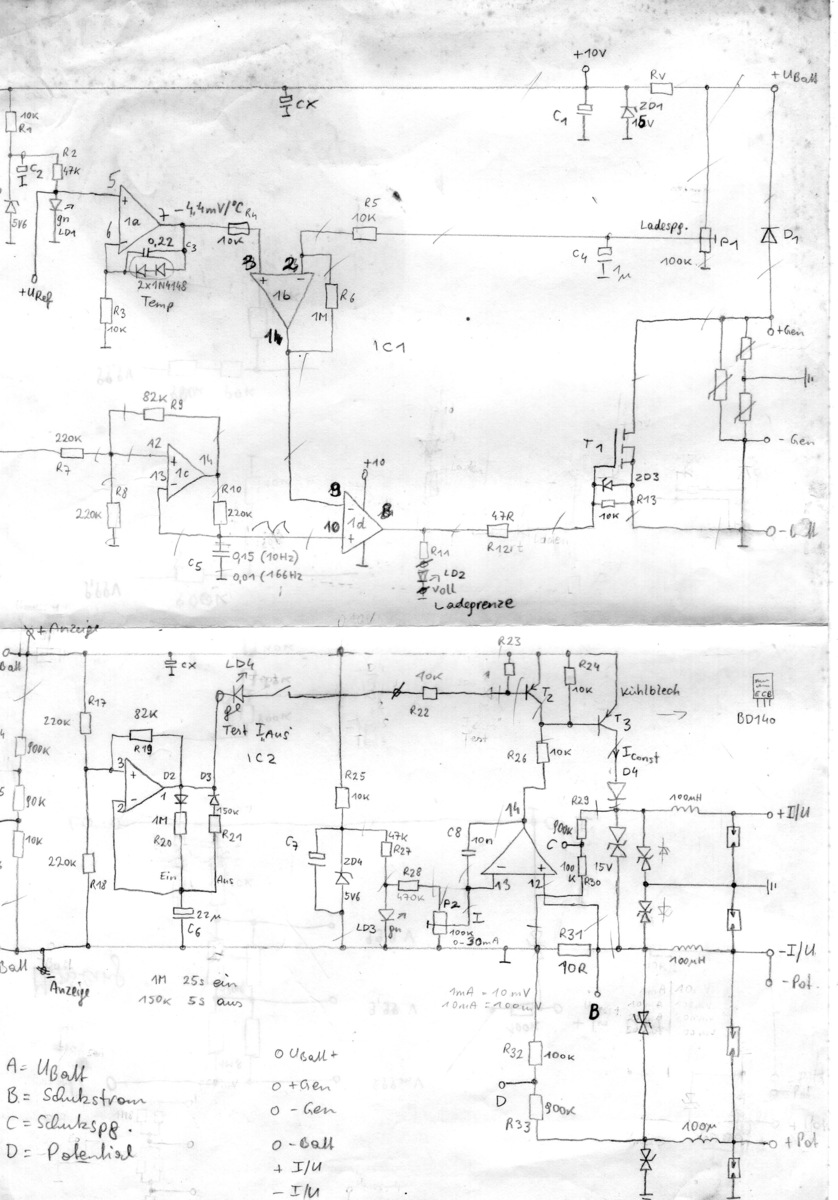 +10V
+ UBatt
RV
10K
R1
CX
C1
ZD1
15V
C2
R2
47K
5
+
1a
7
-4,4mV/°C
R4
10K
R5
10K
Ladespg.
P1
100K
D1
5V6
gn
LD1
6
-
0,22
C3
2x1N4148
Temp
+URef
R3
10K
3
2
+
-
1b
R6
1M
14
C4
1µ
IC1
+Gen
- Gen
82K
R9
220K
R7
12
+
1c
14
13
-
R8
220K
R10
220K
C5
0,15 (10Hz)
0,01 (166Hz
+10
9
-
1d
8
10
+
47R
R12
T1
ZD3
R13
10K
R11
LD2
voll
Ladegrenze
+ Anzeige
Batt
CX
LD4
ge
Test I Aus
IC2
10K
R22
R23
T2
R24
10K
Kühlblech
T3
ECB
BD140
R17
220K
82K
R19
900K
3
+
D2
1
D3
2
-
90K
1M
R20
150K
R21
10K
220K
R18
Ein
Aus
22µ
C6
R25
10K
R26
10K
IConst
D4
14
C7
ZD4
5V6
47K
R27
R28
470K
C8
10n
-
+
13
12
R29
900K
C
100K
R30
15V
100µH
+I/U
LD3
gn
P2
100K
0-30mA
I
R31
10R
100µH
-I/U
- Pot.
Batt
Anzeige
1M 25s ein
150K 5s aus
1mA = 10mV
10mA = 100mV
B
R32
100K
D
R33
900K
100µ
+ Pot
A = UBatt
B = Schutzstrom
C = Schutzspg.
D = Potential
UBatt+
+Gen
- Gen
-Batt
+ I/U
- I/U